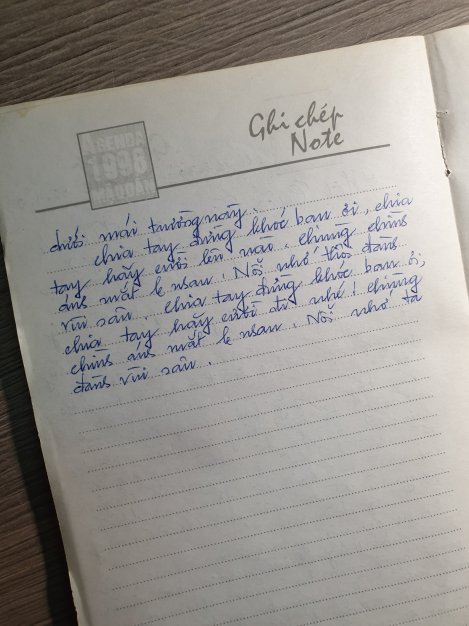 AGENDA
1996
MẬU DẦN
Ghi chép
Note
dưới mái trường này.
chia tay đừng khóc bạn ơi, chia
tay hãy cười lên nào. chúng chình
ánh mắt lệ nsan. Nỗi nhớ thôi đành
vùi sâu. chia tay đừng khóc bạn ơi,
chia tay hãy cười đi nhé! chúng
chình ánh mắt lệ nsan. Nỗi nhớ ta
đành vùi sâu.